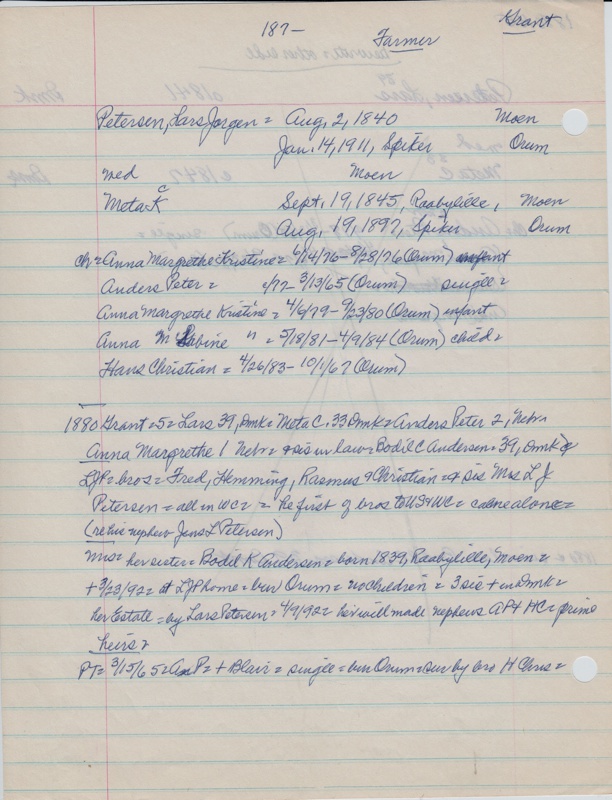 187- Farmer Grant
Petersen, Lars Jorgen = Aug, 2, 1840 Moen
Jan. 14, 1911, Spiker Orum
med Moen
Meta K C Sept. 19, 1845, Raabylille, Moen
Aug, 19, 1897, Spiker Orum
ch = Anna Margrethe Kristine = 6/14/76 - 8/28/76 (Orum) infant
Anders Peter = /77 - 3/13/65 (Orum) single =
Anna Margrethe Kristine = 4/6/79 - 9/23/80 (Orum) infant
Anna M Sabine " = 5/18/81 - 4/9/84 (Orum) child =
Hans Christian = 4/26/83 - 10/1/67 (Orum)
1880 Grant = 5 = Lars 39, Dmk = Meta C. 33 Dmk = Anders Peter 2, Nebr.
Anna Margrethe 1 Nebr = & sis in law = Bodil C Andersen = 39, Dmk
LJP = bros = Fred, Hemming, Rasmus & Christian = & sis Mrs L J
Petersen = all in WC = = he first of bros to US & WC = came alone =
(re his nephew Jens L Petersen)
Mrs = her sister = Bodil K Andersen = born 1839, Raabylille, Moen =
+ 3/23/92 = at LJP home = bur Orum = no children = 3 sis + in Dmk =
her Estate = by Lars Petersen = 4/9/92 = her will made nephews AP & HC = prime
heirs =
PT = 3/15/65 = P = + Blair = single = bur Orum = sur by bro H Chris =